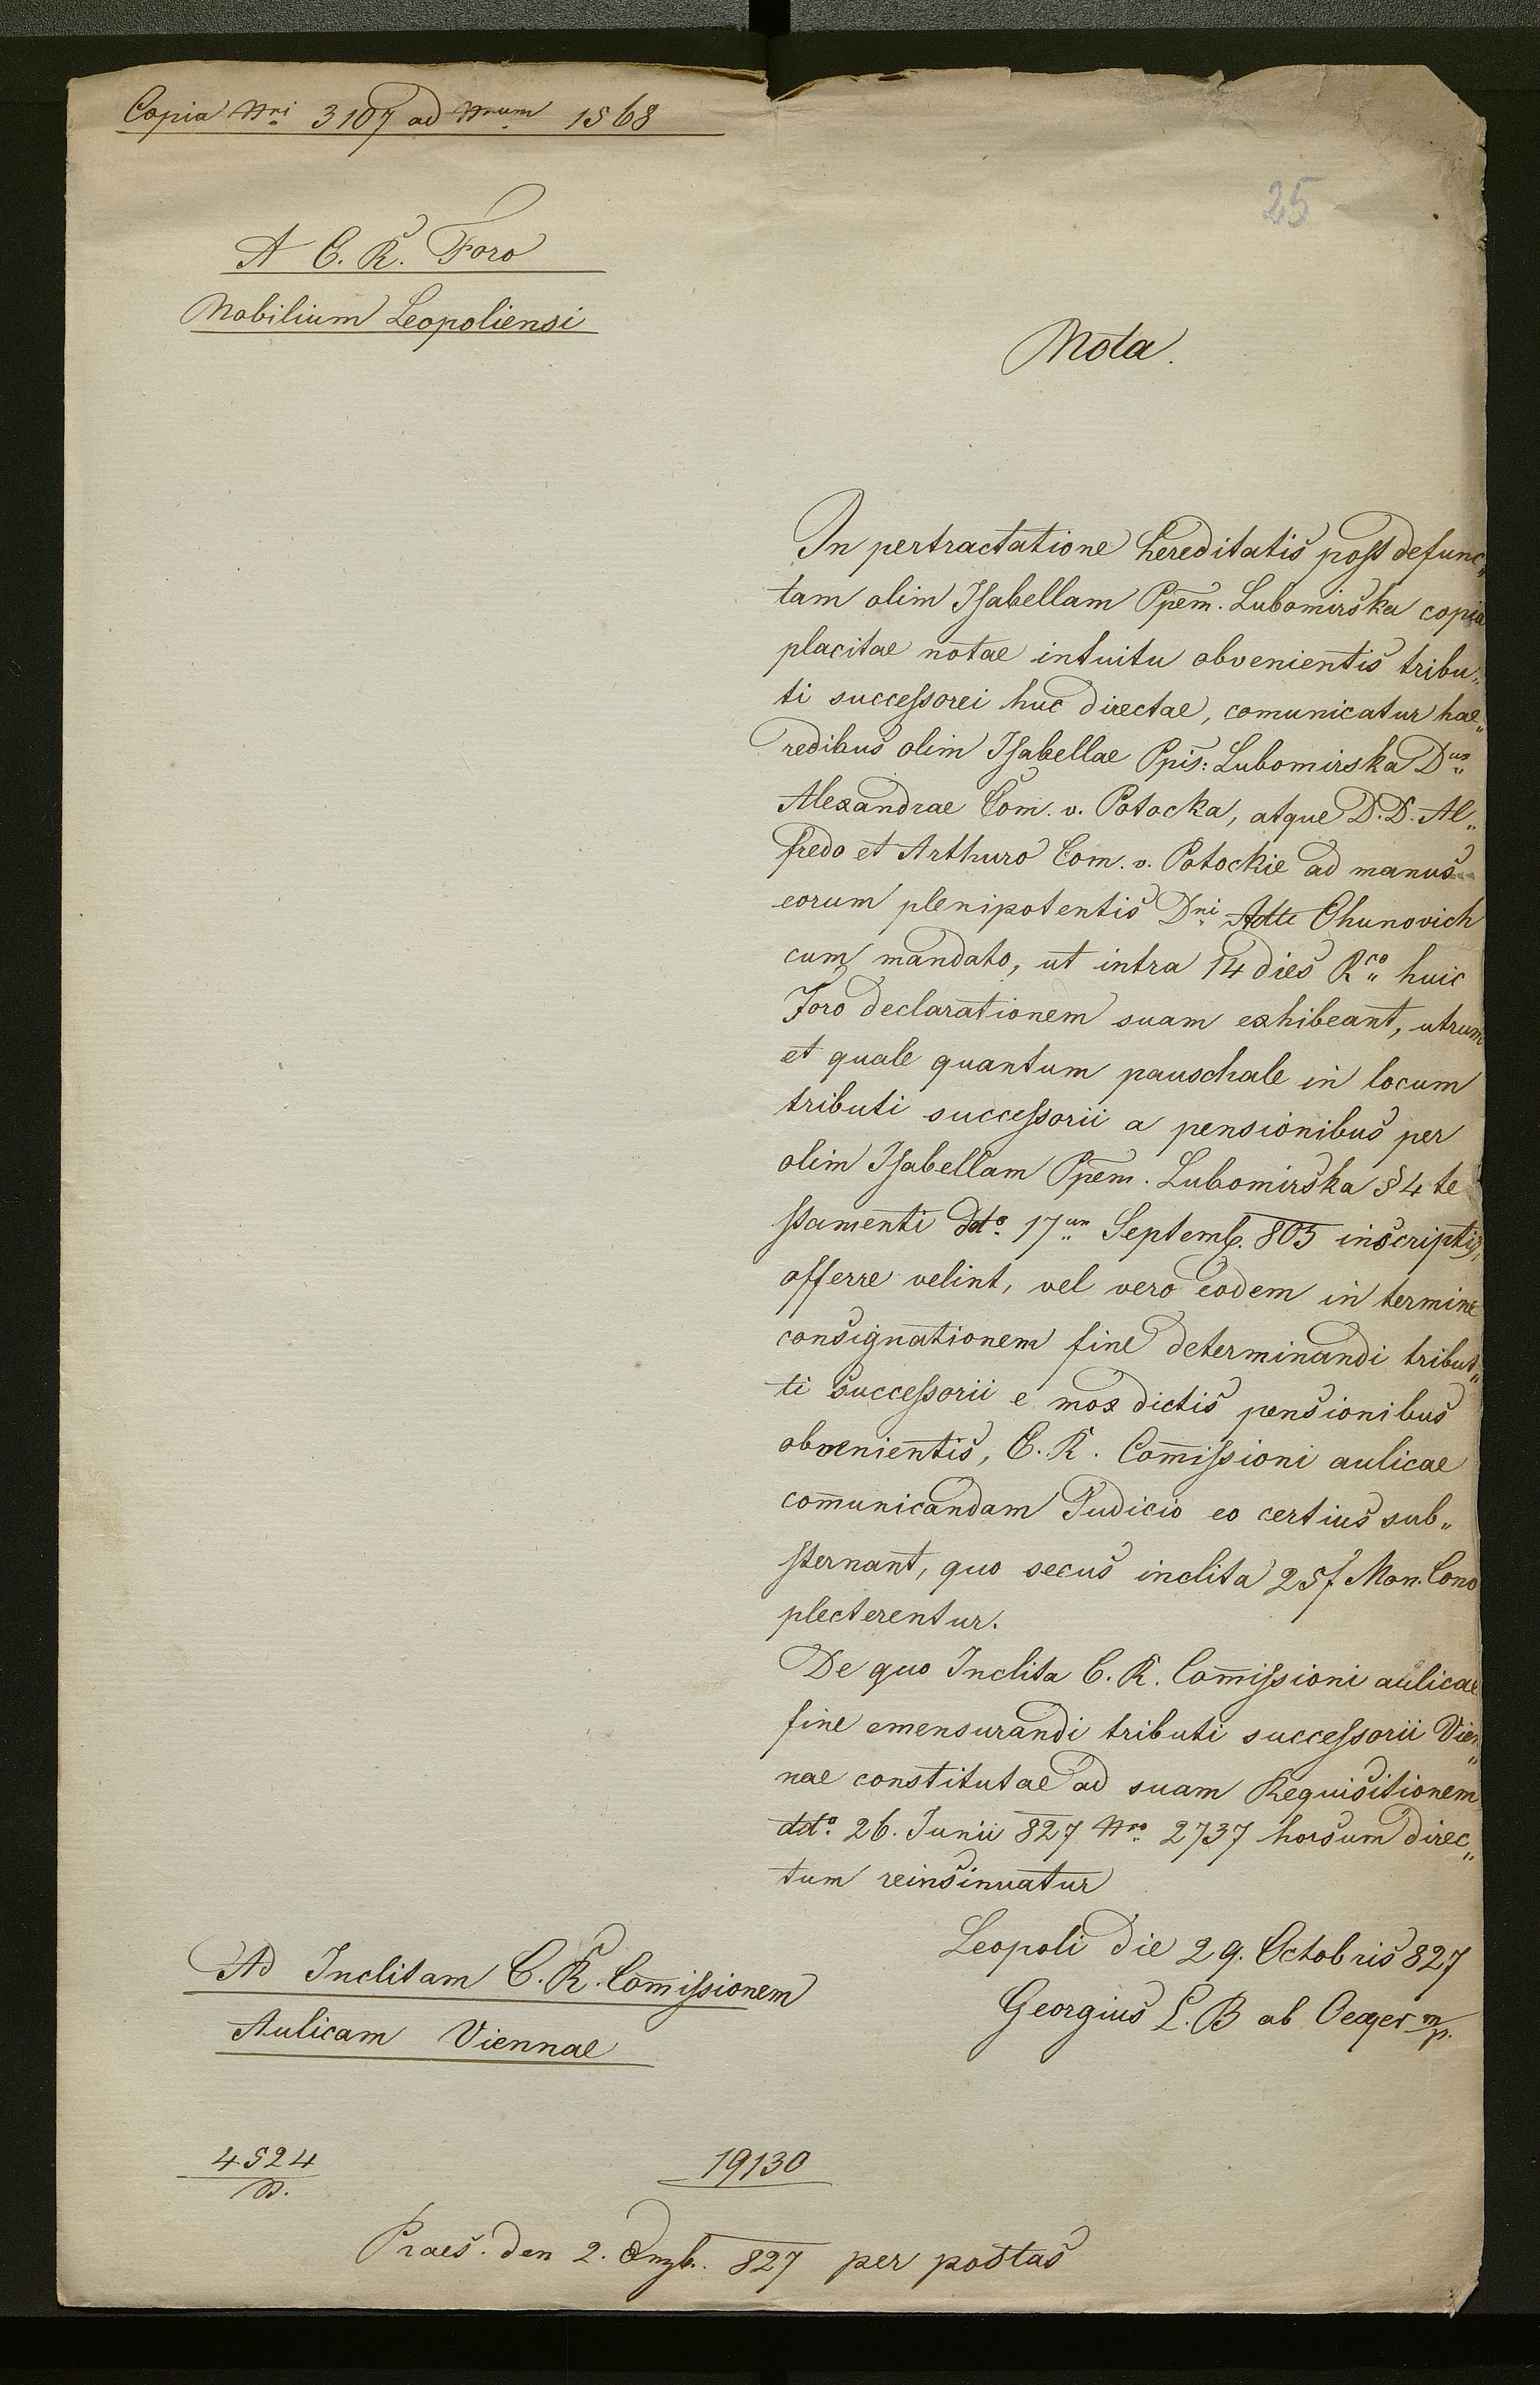 Copia Nri 3107 ad Nrum 1568
25
A C. R. Foro
Nobilium Leopoliensi
Nota.
In pertractatione hereditatis post defunc„
tam olim Isabellam Ppem. Lubomirska copia
placitae notae intuitu obvenientis tribu„
ti successorei huc directae, comunicatur hae„
redibus olim Isabellae Ppis: Lubomirska Dnae
Alexandrae Com. v. Potocka, atque D.D. Al„
fredo et Arthuro Com. v. Potockie ad manus
eorum plenipotentis Dni Adti Chunovich
cum mandato, ut intra 14 dies Rco huic
Foro declarationem suam exhibeant, utrum
et quale quantum pauschale in locum
tributi successorii a pensionibus per
olim Isabellam Ppem. Lubomirska § 4 te
stamenti ddto 17. Septemb. 805 inscriptis,
offerre velint, vel vero eodem in termino
consignationem fine determinandi tribut„
ti successorii e mox dictis pensionibus
obvenientis, C. R. Com̄issioni aulicae
com̄unicandam Judicio eo certius sub„
sternant, quo secus inclita 25 f Mon. Conv
plecterentur.
De quo Inclita C. R. Com̄issioni aulicae
fine emensurandi tributi successorii Vien„
nae constitutae ad suam Requisitionem
ddto. 26. Junii 827 Nro 2737 horsum direc„
tum reinsinuatur
Leopoli die 29. Octobris 827
Georgius L. B ab Oeger m/p.
Ad Inclitam C. R. Com̄issionem
Aulicam Viennae
4524
19130
Praes. den 2. 827 per postas